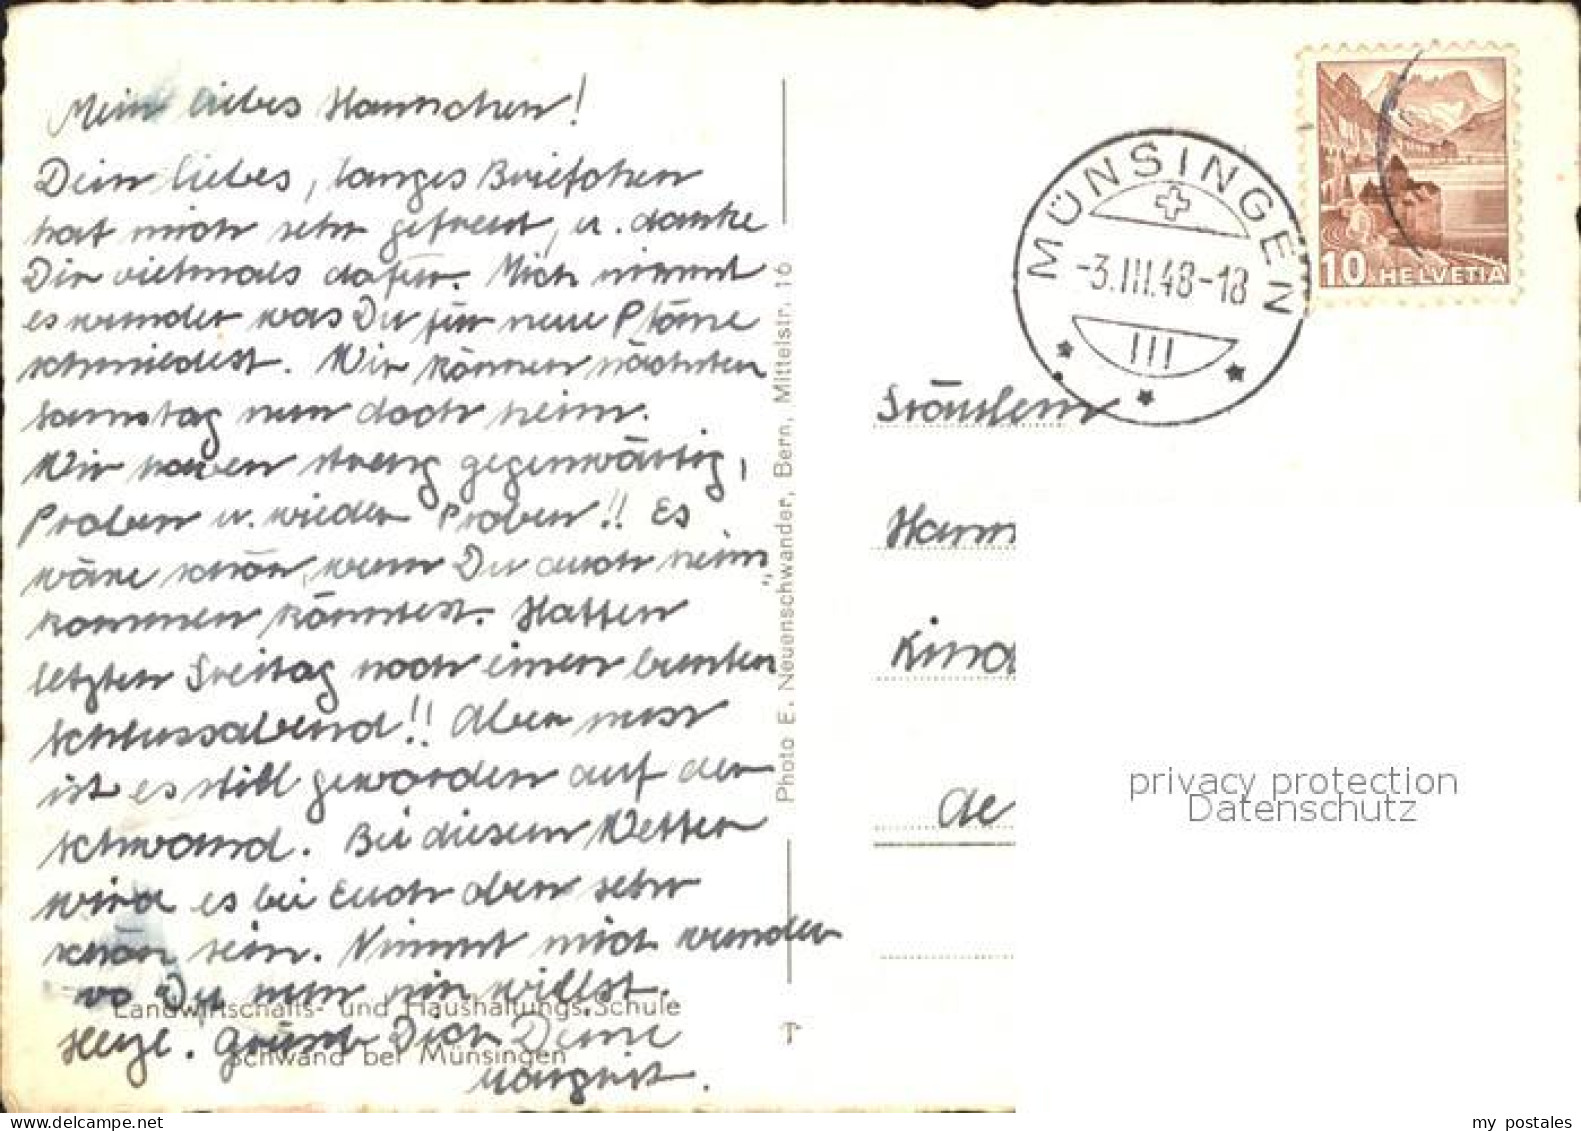 Mein liebes Hannchen!
Dein liebes, langes Briefchen
hat mich sehr gefreut, u. danke
Dir vielmals dafür. Mich nimmt
es wunder was Du für neue Pläne
schmiedest. Wir können nächsten
Samstag nun doch heim.
Wir haben streng gegenwärtig,
Proben u. wieder Proben!! Es
wäre schön, wenn Du auch heim
kommen könntest. Hatten
letzten Freitag noch einen bunten
Schlussabend!! Aber nun
ist es still geworden auf der
Schwand. Bei diesem Wetter
wird es bei Euch oben sehr
schön sein. Nimmt mich wunder
wo Du nun hin willst.
Herzl. grüsst Dich Deine
Margrit.
Landwirtschafts- und Haushaltungs-Schule
Schwand bei Münsingen
Photo E. Neuenschwander, Bern, Mittelstr. 16
MÜNSINGEN
-3.III.48-18
III
10 HELVETIA
Fräulein
Hann
Kind
de
privacy protection
Datenschutz
my postales